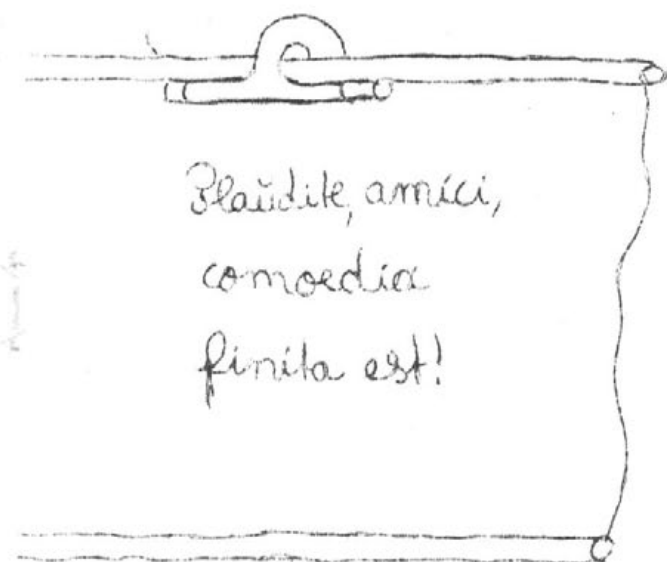 Plaŭdite, amici,
comoedia
finita est!